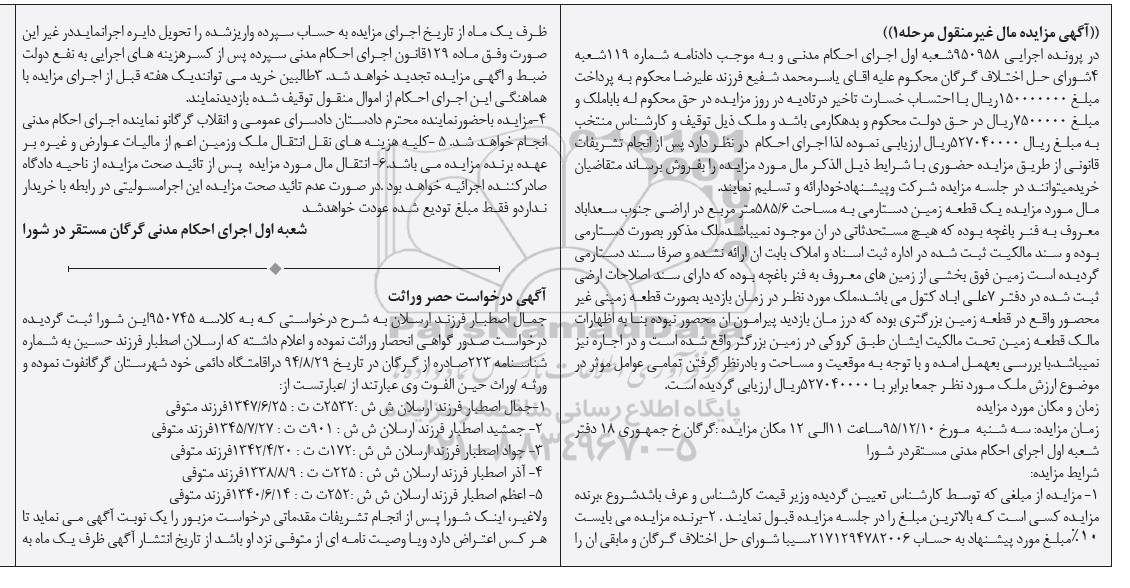 ((آگهی مزایده مال غیرمنقول مرحله۱))
در پرونده اجرایی ۹۵۰۹۵۸شعبه اول اجرای احکام مدنی و به موجب دادنامه شماره ۱۱۹شعبه
۴شورای حل اختلاف گرگان محکوم علیه اقای یاسرمحمد شفیع فرزند علیرضا محکوم به پرداخت
مبلغ ۱۵۰۰۰۰۰۰۰ریال با احتساب خسارت تاخیر درتادیه در روز مزایده در حق محکوم له باباملک و
مبلغ ۷۵۰۰۰۰۰ریال در حق دولت محکوم و بدهکارمی باشد و ملک ذیل توقیف و کارشناس منتخب
به مبلغ ریال ۵۲۷۰۴۰۰۰۰ریال ارزیابی نموده لذا اجرای احکام در نظر دارد پس از انجام تشریفات
قانونی از طریق مزایده حضوری با شرایط ذیل الذکر مال مورد مزایده را بفروش برساند متقاضیان
خریدمیتوانند در جلسه مزایده شرکت وپیشنهادخودارائه و تسلیم نمایند.
مال مورد مزایده یک قطعه زمین دستارمی به مساحت ۵۸۵/۶متر مربع در اراضی جنوب سعداباد
معروف به فنر باغچه بوده که هیچ مستحدثاتی در ان موجود نمیباشدملک مذکور بصورت دستارمی
بوده و سند مالکیت ثبت شده در اداره ثبت اسناد و املاک بابت ان ارائه نشده و صرفا سند دستارمی
گردیده است زمین فوق بخشی از زمین های معروف به فنر باغچه بوده که دارای سند اصلاحات ارضی
ثبت شده در دفتر ۷علی اباد کتول می باشدملک مورد نظر در زمان بازدید بصورت قطعه زمینی غیر
محصور واقع در قطعه زمین بزرگتری بوده که درز مان بازدید پیرامون ان محصور نبوده بنا به اظهارات
مالک قطعه زمین تحت مالکیت ایشان طبق کروکی در زمین بزرگتر واقع شده است و در اجاره نیز
نمیباشدبا بررسی بعهمل امده و با توجه به موقعیت و مساحت و بادرنظر گرفتن تمامی عوامل موثر در
موضوع ارزش ملک مورد نظر جمعا برابر با ۵۲۷۰۴۰۰۰۰ریال ارزیابی گردیده است.
زمان و مکان مورد مزایده
زمان مزایده: سه شنبه مورخ ۹۵/۱۲/۱۰ساعت ۱۱الی ۱۲ مکان مزایده :گرگان خ جمهوری ۱۸ دفتر
شعبه اول اجرای احکام مدنی مستقردر شورا
شرایط مزایده:
۱- مزایده از مبلغی که توسط کارشناس تعیین گردیده وزیر قیمت کارشناس و عرف باشدشروع ،برنده
مزایده کسی است که بالاترین مبلغ را در جلسه مزایده قبول نمایند . ۲-برنده مزایده می بایست
۱۰٪مبلغ مورد پیشنهاد به حساب ۲۱۷۱۲۹۴۷۸۲۰۰۶سیبا شورای حل اختلاف گرگان و مابقی ان را
ظرف یک ماه از تاریخ اجرای مزایده به حساب سپرده واریزشده را تحویل دایره اجرانمایددر غیر این
صورت وفق ماده ۱۲۹قانون اجرای احکام مدنی سپرده پس از کسرهزینه های اجرایی به نفع دولت
ضبط و اگهی مزایده تجدید خواهد شد. ۳طالبین خرید می توانندیک هفته قبل از اجرای مزایده با
هماهنگی این اجرای احکام از اموال منقول توقیف شده بازدیدنمایند.
۴-مزایده باحضورنماینده محترم دادستان دادسرای عمومی و انقلاب گرگانو نماینده اجرای احکام مدنی
انجام خواهد شد. ۵ -کلیه هزینه های نقل انتقال ملک وزمین اعم از مالیات عوارض و غیره بر
عهده برنده مزایده می باشد.۶- انتقال مال مورد مزایده پس از تائید صحت مزایده از ناحیه دادگاه
صادرکننده اجرائیه خواهد بود .در صورت عدم تائید صحت مزایده این اجرامسولیتی در رابطه با خریدار
نداردو فقط مبلغ تودیع شده عودت خواهدشد
شعبه اول اجرای احکام مدنی گرگان مستقر در شورا
آگهی درخواست حصر وراثت
جمال اصطبار فرزند ارسلان به شرح درخواستی که به کلاسه ۹۵۰۷۴۵این شورا ثبت گردیده
درخواست صدور گواهی انحصار وراثت نموده و اعلام داشته که ارسلان اصطبار فرزند حسین به شماره
شناسنامه ۲۲۳صادره از گرگان در تاریخ ۹۴/۸/۲۹ دراقامتگاه دائمی خود شهرستان گرگانفوت نموده و
ورثه /وراث حین الفوت وی عبارتند از /عبارتست از:
۱-جمال اصطبار فرزند ارسلان ش ش :۲۵۳۲ت ت : ۱۳۴۷/۶/۲۵فرزند متوفی
۲- جمشید اصطبار فرزند ارسلان ش ش : ۹۰۱ت ت : ۱۳۴۵/۷/۲۷فرزند متوفی
۳- جواد اصطبار فرزند ارسلان ش ش :۱۷۲ت ت : ۱۳۴۲/۴/۲۰فرزند متوفی
۴- آذر اصطبار فرزند ارسلان ش ش : ۲۲۵ت ت : ۱۳۳۸/۸/۹فرزند متوفی
۵- اعظم اصطبار فرزند ارسلان ش ش :۲۵۲ت ت : ۱۳۴۰/۶/۱۴فرزند متوفی
ولاغیر، اینک شورا پس از انجام تشریفات مقدماتی درخواست مزبور را یک نوبت آگهی می نماید تا
هر کس اعتراض دارد ویا وصیت نامه ای از متوفی نزد او باشد از تاریخ انتشار آگهی ظرف یک ماه به
ParsNamadData
پایگاه اطلاع رسانی مناقصه و مزایده
۰۲۱-۸۸۳۴۹۶۷۰-۵